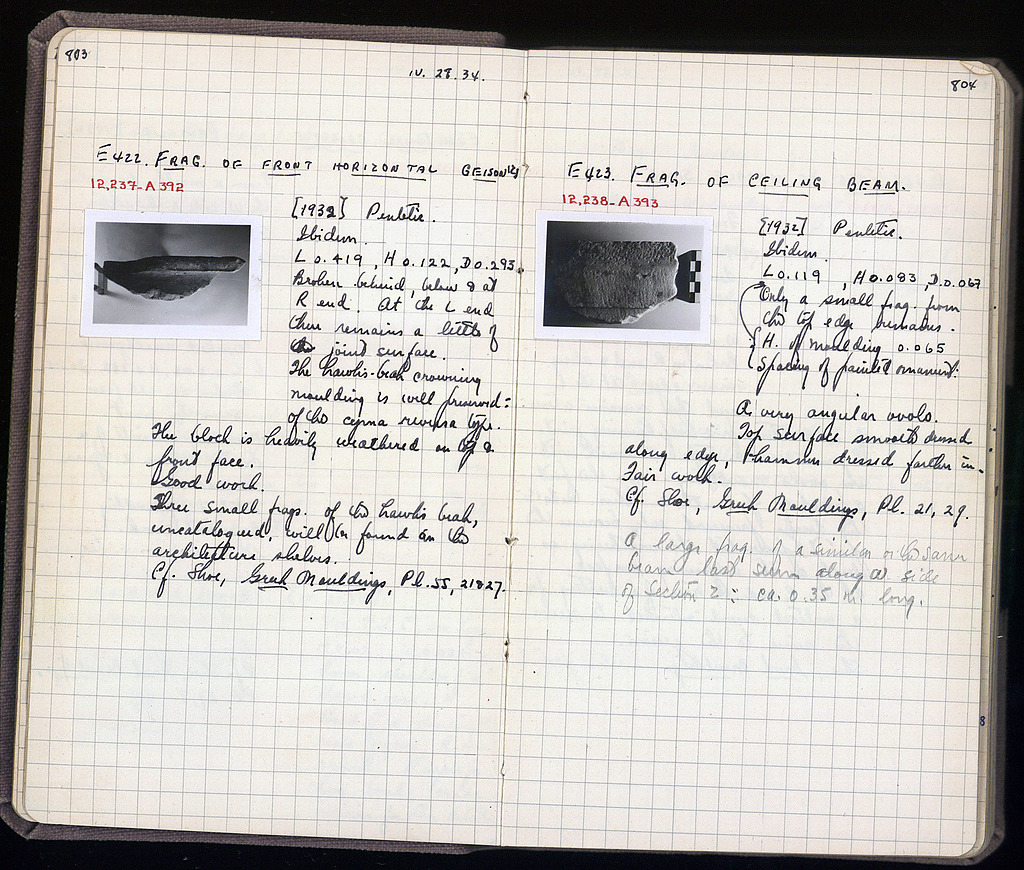 803
IV. 28. 34.
E422. FRAG. OF FRONT HORIZONTAL GEISON
12,237-A392
[1932] Pentelic.
Ibidem.
L 0.419, H 0.122, D 0.293
Broken behind, below & at
R end. At the L end
there remains a little of
joint surface.
The hawks-beak crowning
moulding is well preserved:
of the cyma reversa type.
The block is heavily weathered on top &
front face.
Good work.
Three small frags. of the hawks beak,
uncatalogued, will be found on the
architecture shelves.
Cf. Shoe, Greek Mouldings, Pl. 55, 21 & 27.
804
E423. FRAG. OF CEILING BEAM.
12,238-A393
[1932] Pentelic.
Ibidem.
L 0.119, H 0.083, D. 0.067
Only a small frag. from
the top edge remains.
H. of moulding 0.065
Spacing of painted ornament:
A very angular ovolo.
Top surface smooth dressed
along edge, hammer dressed farther in.
Fair work.
Cf. Shoe, Greek Mouldings, Pl. 21, 29.
A large frag. of a similar or the same
beam last seen along W. side
of Section Z: ca. 0.35 m. long.
8